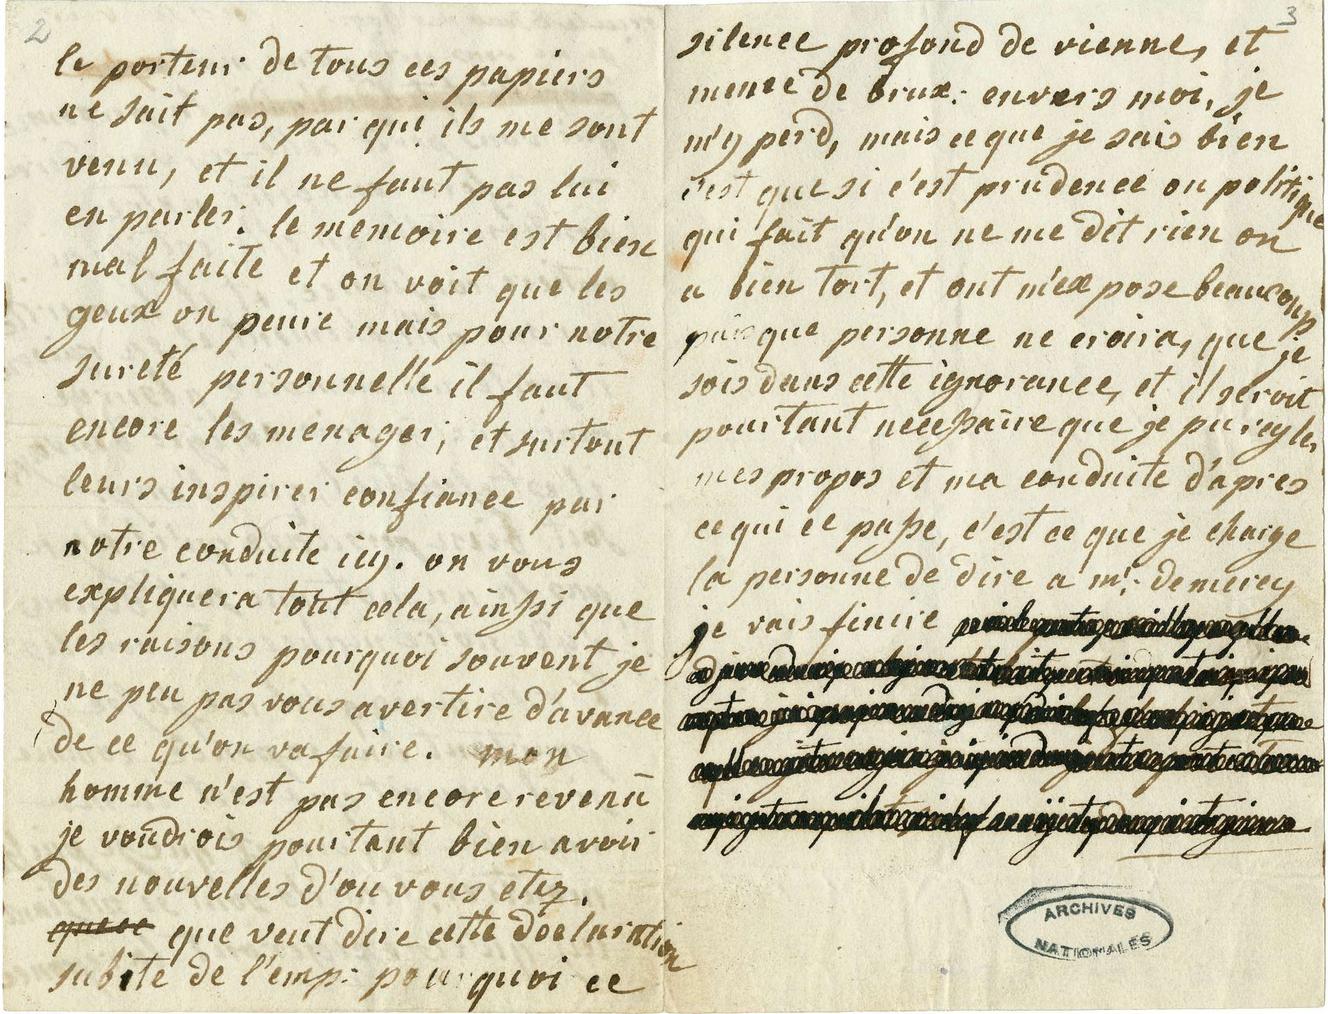 2
le porteur de tous ces papiers
ne sait pas, par qui ils me sont
venu, et il ne faut pas lui
en parler. le memoire est bien
mal faite et on voit que les
geux on peure mais pour notre
sureté personnelle il faut
encore les menager, et surtout
leurs inspirer confiance par
notre conduite icy. on vous
expliquera tout cela, ainsi que
les raisons pourquoi souvent je
ne peu pas vous avertire d'avance
de ce qu'on va faire. mon
homme n'est pas encore revenu
je voudrois pourtant bien avoir
des nouvelles d'ou vous etez.
que veut dire cette declaration
subite de l'emp: pourquoi ce
3
silence profond de vienne, et
meme de brux: envers moi, je
m'y perd, mais ce que je sais bien
c'est que si c'est prudence ou politique
qui fait qu'on ne me dit rien on
a bien tort, et ont m'expose beaucoup
puisque personne ne croira, que je
sois dans cette ignorance, et il seroit
pourtant necessaire que je pu regler
mes propos et ma conduite d'apres
ce qui ce passe, c'est ce que je charge
la personne de dire a mr: de mercy
je vais finire
ARCHIVES
NATIONALES